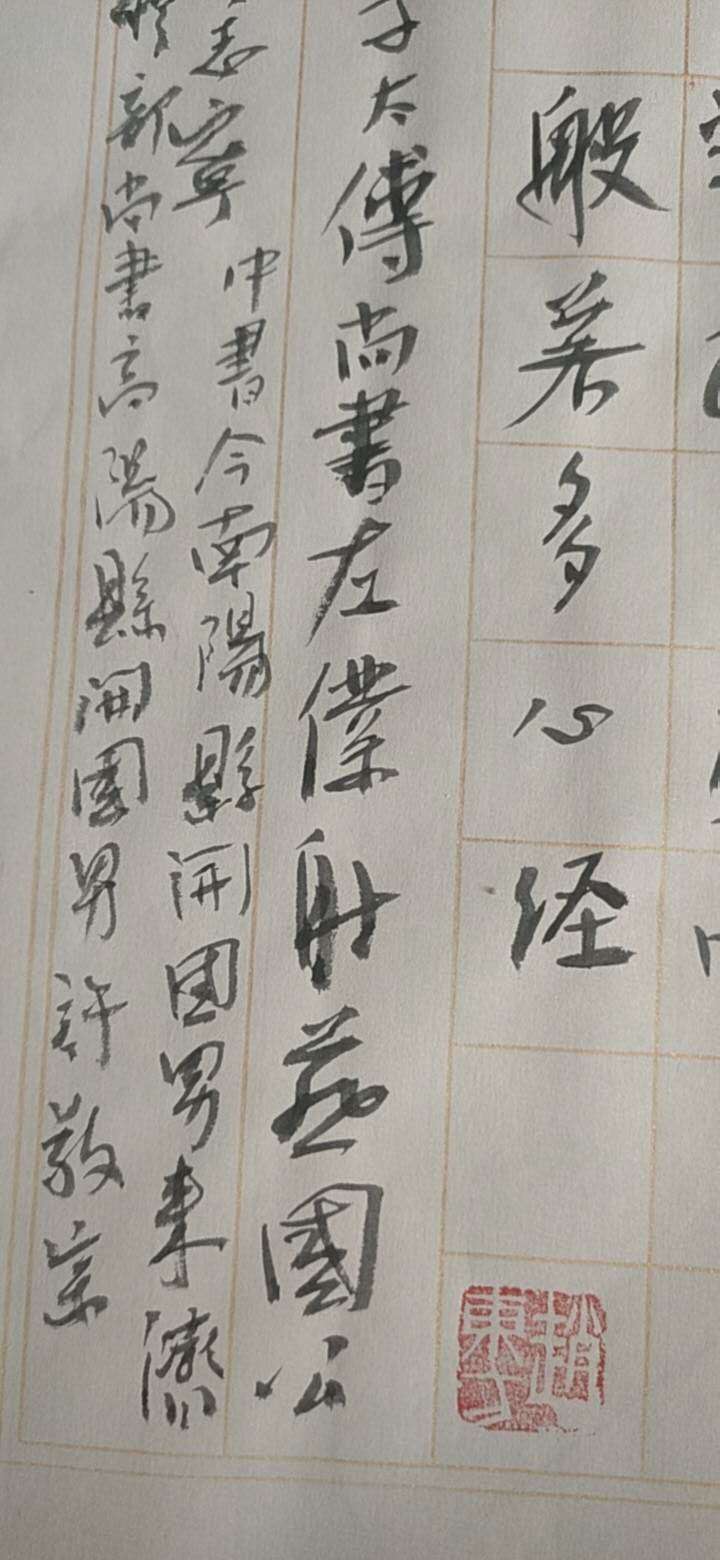 般若多心经
太傅尚書左僕射燕國公
志寧 中書令南陽縣開國男来濟
部尚書高陽縣開國男許敬宗